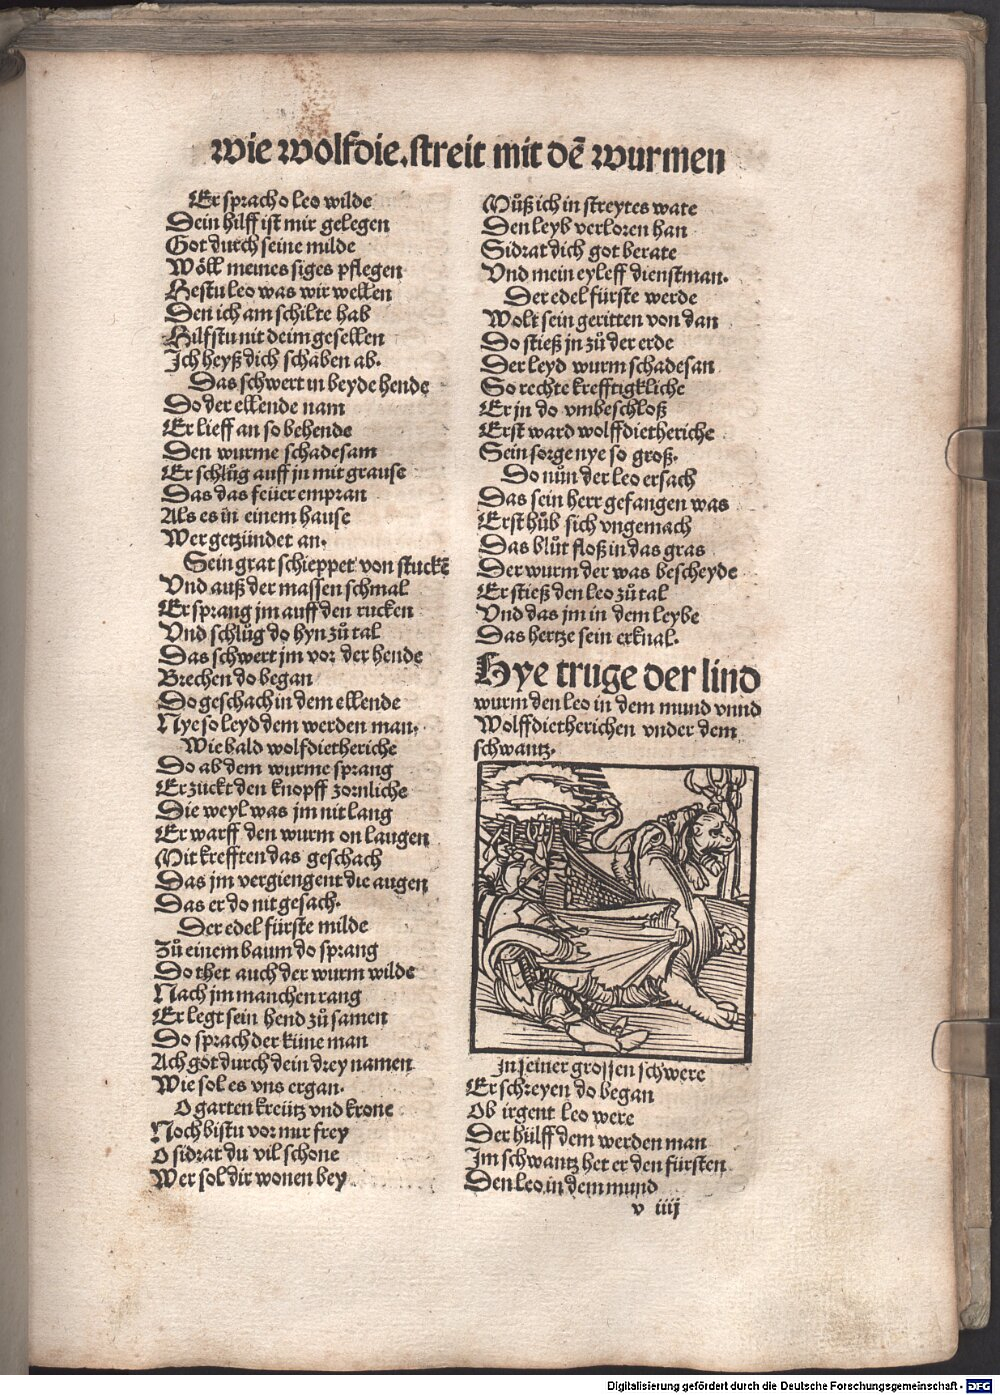 wie wolfdie.streit mit dē wurmen
Er sprach o leo wilde
Dein hilff ist mir gelegen
Got durch seine milde
Wöll meines siges pflegen
Hestu leo was wir wellen
Den ich am schilte hab
Hilfstu nit deim gesellen
Ich heyß dich schaben ab.
Das schwert in beyde hende
Do der ellende nam
Er lieff an so behende
Den wurme schadesam
Er schlůg auff jn mit grause
Das das feüer empran
Als es in einem hause
Wer getzündet an.
Sein grat schieppet von stuckē
Vnd auß der massen schmal
Er sprang jm auff den rucken
Vnd schlůg do hyn zů tal
Das schwert jm vor der hende
Brechen do began
Do geschach in dem ellende
Nye so leyd dem werden man.
Wie bald wolfdietheriche
Do ab dem wurme sprang
Er zuckt den knopff zornliche
Die weyl was jm nit lang
Er warff den wurm on laugen
Mit krefften das geschach
Das jm vergiengent die augen
Das er do nit gesach.
Der edel fürste milde
Zů einem baum do sprang
Do thet auch der wurm wilde
Nach jm manchen rang
Er legt sein hend zů samen
Do sprach der küne man
Ach got durch dein drey namen
Wie sol es vns ergan.
O garten kreütz vnd krone
Noch bistu vor mir frey
O sidrat du vil schone
Wer sol dir wonen bey
Můß ich in streytes wate
Den leyb verloren han
Sidrat dich got berate
Vnd mein eyleff dienstman.
Der edel fürste werde
Wolt sein geritten von dan
Do stieß jn zů der erde
Der leyd wurm schadesan
So rechte krefftigkliche
Er jn do vmbeschloß
Erst ward wolffdietheriche
Sein sorge nye so groß.
Do nůn der leo ersach
Das sein herr gefangen was
Erst hůb sich vngemach
Das blůt floß in das gras
Der wurm der was bescheyde
Er stieß den leo zů tal
Vnd das jm in dem leybe
Das hertze sein erknal.
Hye truge der lind
wurm den leo in dem mund vnnd
Wolffdietherichen vnder dem
schwantz.
In seiner grossen schwere
Er schreyen do began
Ob irgent leo were
Der hülff dem werden man
Im schwantz het er den fürsten
Den leo in dem mund
v iiij
Digitalisierung gefördert durch die Deutsche Forschungsgemeinschaft - DFG